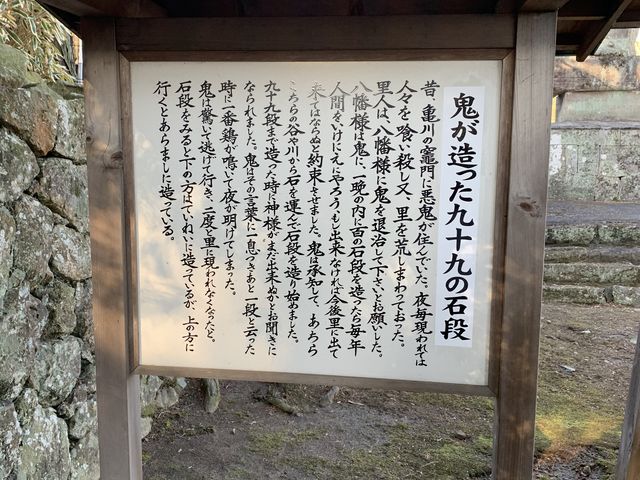 鬼が造った九十九の石段
昔、亀川の竈門に悪鬼が住んでいた。夜毎現われては
人々を喰い殺し又、里を荒しまわっておった。
里人は、八幡様に鬼を退治して下さいとお願いした。
八幡様は鬼に、一晩の内に百の石段を造ったら毎年
人間をいけにえにやろう、もし出来なければ今後里に出て
来てはならぬと約束をさせました。鬼は承知して、あちら
こちらの谷や川から石を運んで石段を造り始めました。
九十九段まで造った時に神様がまだ出来ぬかとお聞きに
なられました。鬼はその言葉に一息つきあと一段と云った
時に一番鶏が鳴いて夜が明けてしまった。
鬼は驚いて逃げて行き、二度と里に現われなくなったと。
石段をみると下の方はていねいに造っているが、上の方に
行くとあらましに造っている。